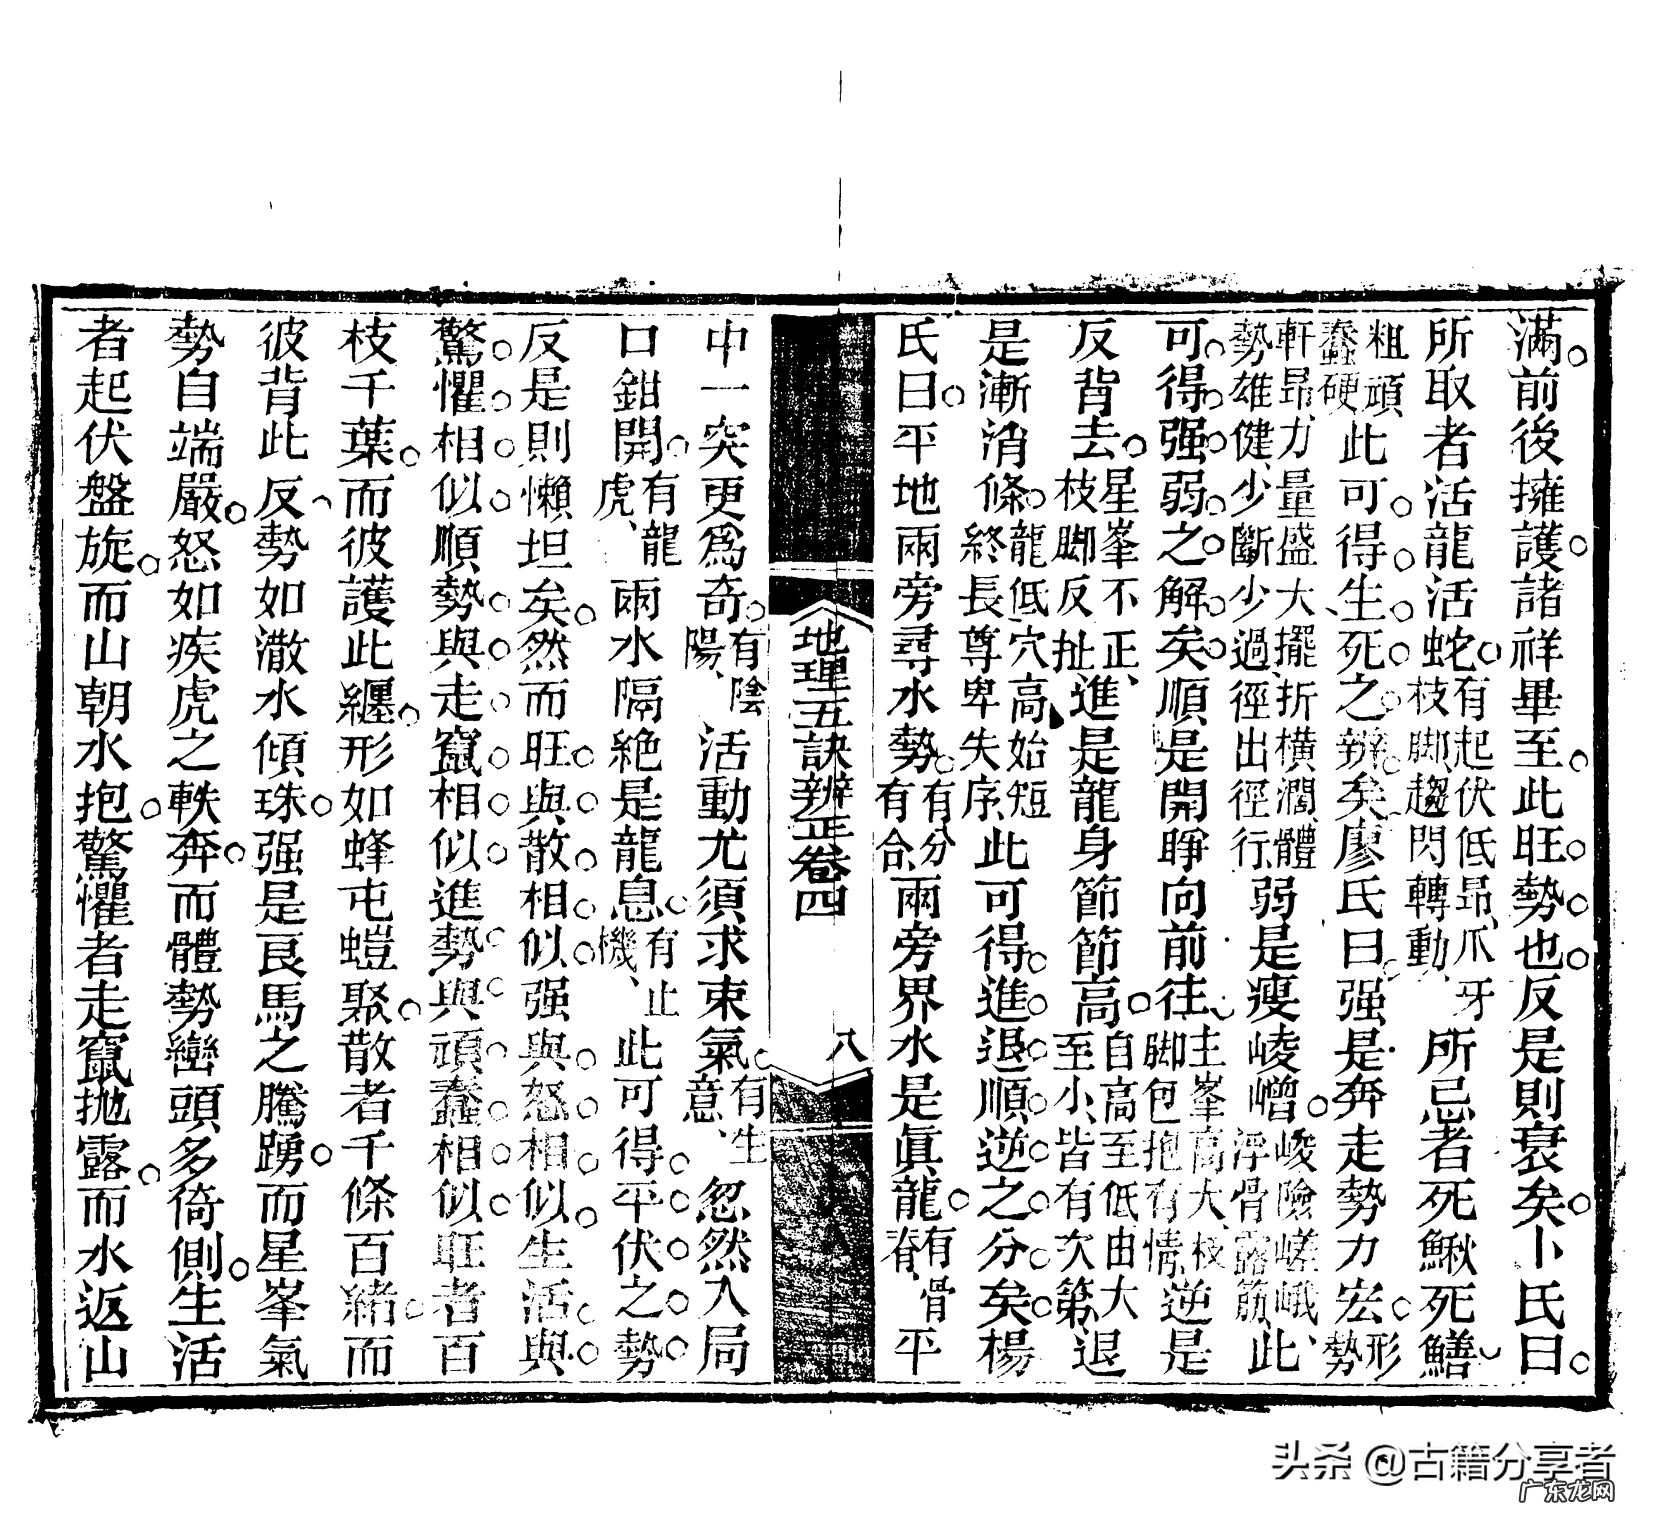 滿前後擁護諸祥畢至此旺勢也反是則衰矣卜氏曰
所取者活龍活蛇有起伏低昂、爪牙枝脚趨閃轉動、所忌者死鰍死鱔
粗頑蠢硬此可得生死之辨矣廖氏曰强是奔走勢力宏形勢
軒昂力量盛大擺折橫濶、體勢雄健、少斷少過、徑出徑行、弱是瘦崚嶒峻險嵯峨、浮骨露筋、此
可得强弱之解矣順是開睜向前往主峯高大、枝脚包抱有情、逆是
反背去星峯不正、枝脚反扯進是龍身節節高自高至低、由大至小、皆有次第、退
是漸消條龍低穴高、始短終長、尊卑失序、此可得進退順逆之分矣楊
氏曰平地兩旁尋水勢有分有合、兩旁界水是眞龍有骨脊、平
地理五訣辨正卷四 八
中一突更爲奇有陰陽、活動尤須求束氣有生意、忽然入局
口鉗開有龍虎、兩水隔絶是龍息有止機、此可得平伏之勢
反是則懶坦矣然而旺與散相似强與怒相似生活與
驚懼相似順勢與走竄相似進勢與頑蠢相似旺者百
枝千葉而彼護此纏形如蜂屯螘聚散者千條百緒而
彼背此反勢如潵水傾珠强是良馬之騰踴而星峯氣
勢自端嚴怒如疾虎之軼奔而體勢巒頭多倚側生活
者起伏盤旋而山朝水抱驚懼者走竄拋露而水返山
头条 @古籍分享者
广东龙网